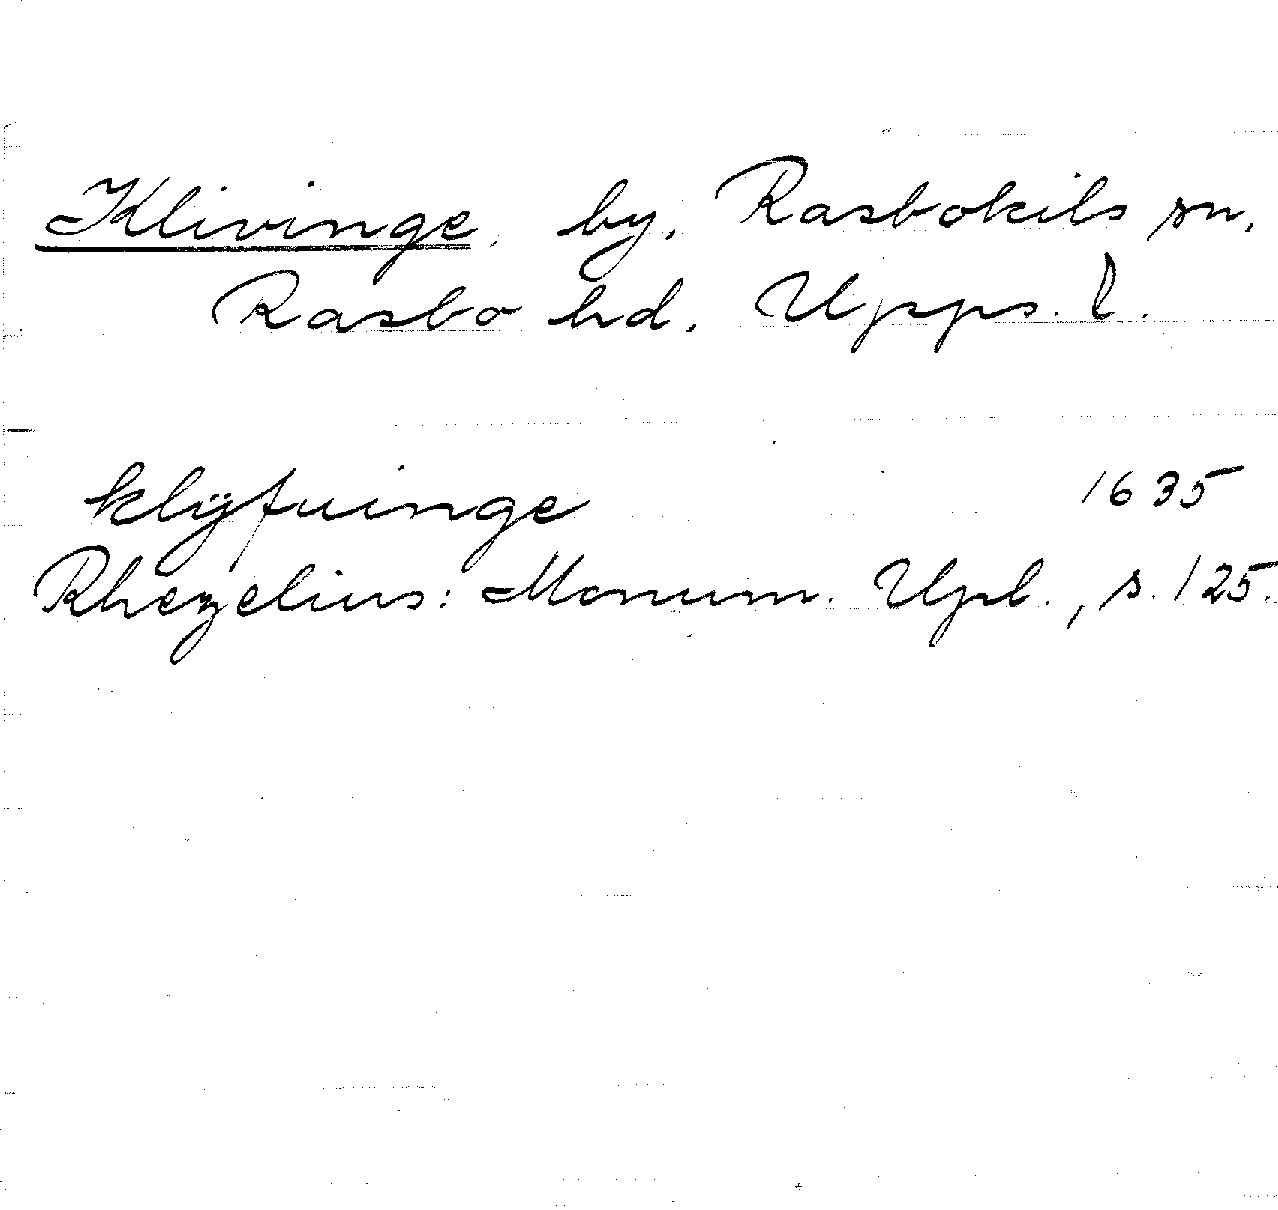 Klivinge, by, Rasbokils sn,
Rasbo hd. Upps. l.
klÿfuinge 1635
Rhezelius: Monum. Upl., s. 125.